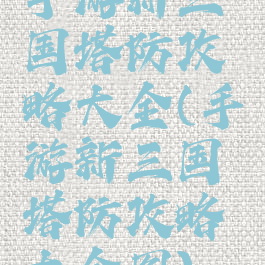 手游新三
国塔防攻
略大全(手
游新三国
塔防攻略
大全图)